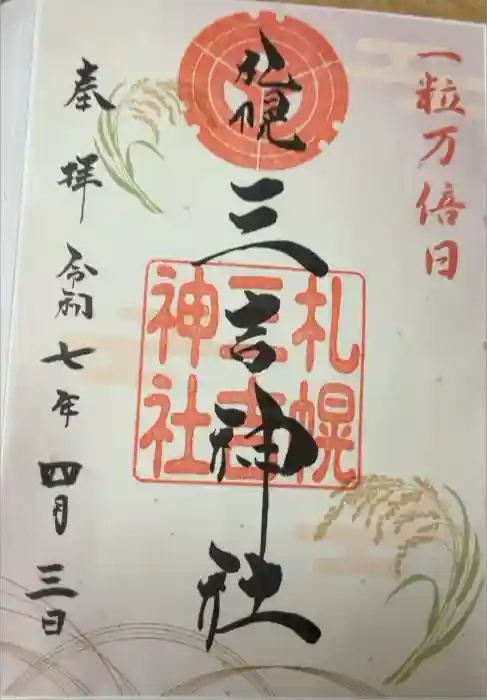 一粒万倍日
札幌
三吉神社
札幌
三吉
神社
奉拝 令和七年四月三日